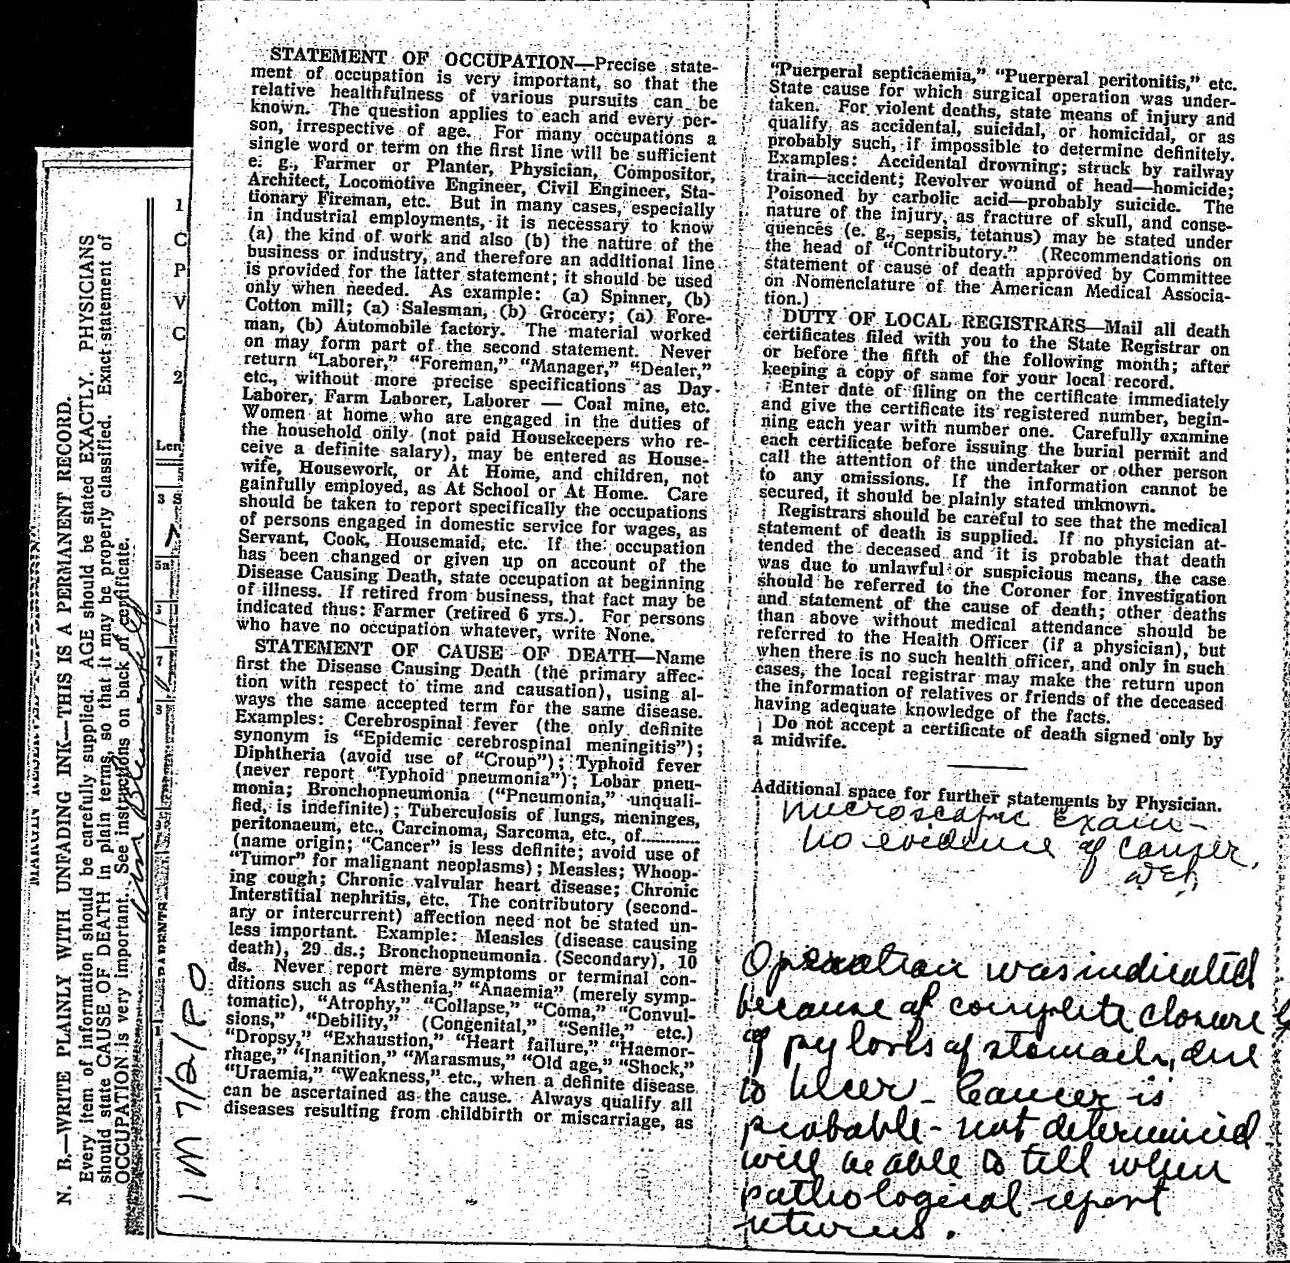 MARGIN RESERVED FOR BINDING
N. B.—WRITE PLAINLY WITH UNFADING INK—THIS IS A PERMANENT RECORD.
Every item of information should be carefully supplied. AGE should be stated EXACTLY. PHYSICIANS
should state CAUSE OF DEATH in plain terms, so that it may be properly classified. Exact statement of
OCCUPATION is very important. See instructions on back of certificate.
PARENTS
1
C
P
V
C
2
Len
3 S
5a
7
1M 7/2/PO
STATEMENT OF OCCUPATION—Precise state-
ment of occupation is very important, so that the
relative healthfulness of various pursuits can be
known. The question applies to each and every per-
son, irrespective of age. For many occupations a
single word or term on the first line will be sufficient
e. g., Farmer or Planter, Physician, Compositor,
Architect, Locomotive Engineer, Civil Engineer, Sta-
tionary Fireman, etc. But in many cases, especially
in industrial employments, it is necessary to know
(a) the kind of work and also (b) the nature of the
business or industry, and therefore an additional line
is provided for the latter statement; it should be used
only when needed. As example: (a) Spinner, (b)
Cotton mill; (a) Salesman, (b) Grocery; (a) Fore-
man, (b) Automobile factory. The material worked
on may form part of the second statement. Never
return "Laborer," "Foreman," "Manager," "Dealer,"
etc., without more precise specifications as Day
Laborer, Farm Laborer, Laborer — Coal mine, etc.
Women at home who are engaged in the duties of
the household only (not paid Housekeepers who re-
ceive a definite salary), may be entered as House-
wife, Housework, or At Home, and children, not
gainfully employed, as At School or At Home. Care
should be taken to report specifically the occupations
of persons engaged in domestic service for wages, as
Servant, Cook, Housemaid, etc. If the occupation
has been changed or given up on account of the
Disease Causing Death, state occupation at beginning
of illness. If retired from business, that fact may be
indicated thus: Farmer (retired 6 yrs.). For persons
who have no occupation whatever, write None.
STATEMENT OF CAUSE OF DEATH—Name
first the Disease Causing Death (the primary affec-
tion with respect to time and causation), using al-
ways the same accepted term for the same disease.
Examples: Cerebrospinal fever (the only definite
synonym is "Epidemic cerebrospinal meningitis");
Diphtheria (avoid use of "Croup"); Typhoid fever
(never report "Typhoid pneumonia"); Lobar pneu-
monia; Bronchopneumonia ("Pneumonia," unquali-
fied, is indefinite); Tuberculosis of lungs, meninges,
peritonaeum, etc., Carcinoma, Sarcoma, etc., of............
(name origin; "Cancer" is less definite; avoid use of
"Tumor" for malignant neoplasms); Measles; Whoop-
ing cough; Chronic valvular heart disease; Chronic
Interstitial nephritis, etc. The contributory (second-
ary or intercurrent) affection need not be stated un-
less important. Example: Measles (disease causing
death), 29 ds.; Bronchopneumonia (Secondary), 10
ds. Never report mere symptoms or terminal con-
ditions such as "Asthenia," "Anaemia" (merely symp-
tomatic), "Atrophy," "Collapse," "Coma," "Convul-
sions," "Debility," (Congenital," "Senile," etc.)
"Dropsy," "Exhaustion," "Heart failure," "Haemor-
rhage," "Inanition," "Marasmus," "Old age," "Shock,"
"Uraemia," "Weakness," etc., when a definite disease
can be ascertained as the cause. Always qualify all
diseases resulting from childbirth or miscarriage, as
"Puerperal septicaemia," "Puerperal peritonitis," etc.
State cause for which surgical operation was under-
taken. For violent deaths, state means of injury and
qualify as accidental, suicidal, or homicidal, or as
probably such, if impossible to determine definitely.
Examples: Accidental drowning; struck by railway
train—accident; Revolver wound of head—homicide;
Poisoned by carbolic acid—probably suicide. The
nature of the injury, as fracture of skull, and conse-
quences (e. g., sepsis, tetanus) may be stated under
the head of "Contributory." (Recommendations on
statement of cause of death approved by Committee
on Nomenclature of the American Medical Associa-
tion.)
DUTY OF LOCAL REGISTRARS—Mail all death
certificates filed with you to the State Registrar on
or before the fifth of the following month; after
keeping a copy of same for your local record.
Enter date of filing on the certificate immediately
and give the certificate its registered number, begin-
ning each year with number one. Carefully examine
each certificate before issuing the burial permit and
call the attention of the undertaker or other person
to any omissions. If the information cannot be
secured, it should be plainly stated unknown.
Registrars should be careful to see that the medical
statement of death is supplied. If no physician at-
tended the deceased and it is probable that death
was due to unlawful or suspicious means, the case
should be referred to the Coroner for investigation
and statement of the cause of death; other deaths
than above without medical attendance should be
referred to the Health Officer (if a physician), but
when there is no such health officer, and only in such
cases, the local registrar may make the return upon
the information of relatives or friends of the deceased
having adequate knowledge of the facts.
Do not accept a certificate of death signed only by
a midwife.
Additional space for further statements by Physician.
Microscopic Exam-
no evidence of cancer.
Operation was indicated
because of complete closure
of pylorus of stomach, due
to Ulcer - Cancer is
probable - not determined
will be able to tell when
pathological report
returns.